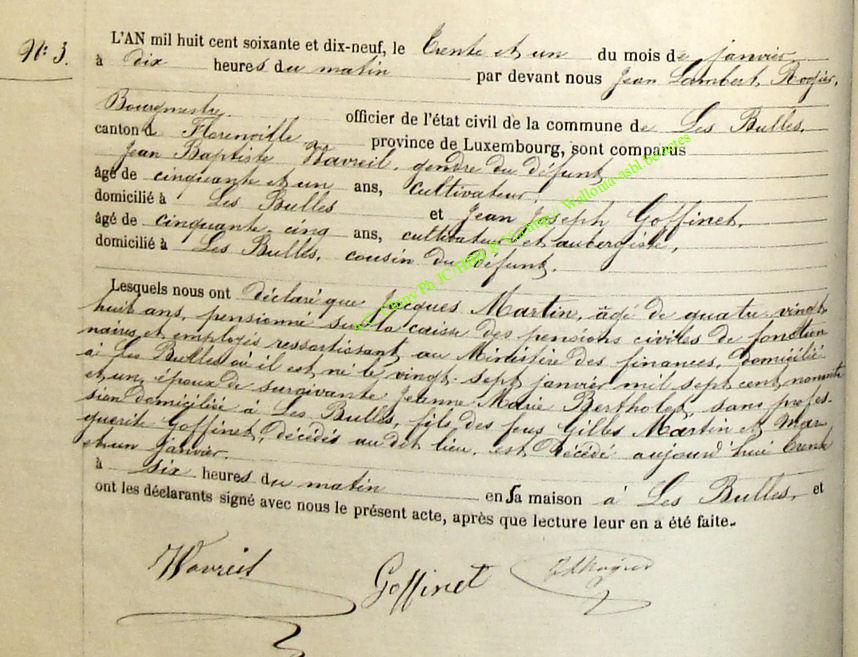 N° 3.
L'AN mil huit cent soixante et dix-neuf, le trente et un du mois de janvier
à dix heures du matin par devant nous Jean Lambert Rogier,
Bourgmestre officier de l'état civil de la commune de Les Bulles,
canton de Florenville province de Luxembourg, sont comparus
Jean Baptiste Wavreil, gendre du défunt
âgé de cinquante et un ans, cultivateur,
domicilié à Les Bulles et Jean Joseph Goffinet,
âgé de cinquante-cinq ans, cultivateur et aubergiste,
domicilié à Les Bulles, cousin du défunt.
Lesquels nous ont déclaré que Jacques Martin, âgé de quatre-vingt
huit ans, pensionné sur la caisse des pensions civiles de fonction
naires et employés ressortissant au Ministère des finances, domicilié
à Les Bulles où il est né le vingt-sept janvier mil sept cent nonante
et un, époux de survivante Jeanne Marie Bertholet, sans profes-
sion domiciliée à Les Bulles, fils des feus Gilles Martin et Mar
guerite Goffinet, décédés au dit lieu, est décédé aujourd'hui trente
et un janvier
à six heures du matin en sa maison à Les Bulles, et
ont les déclarants signé avec nous le présent acte, après que lecture leur en a été faite.
Wavreil Goffinet